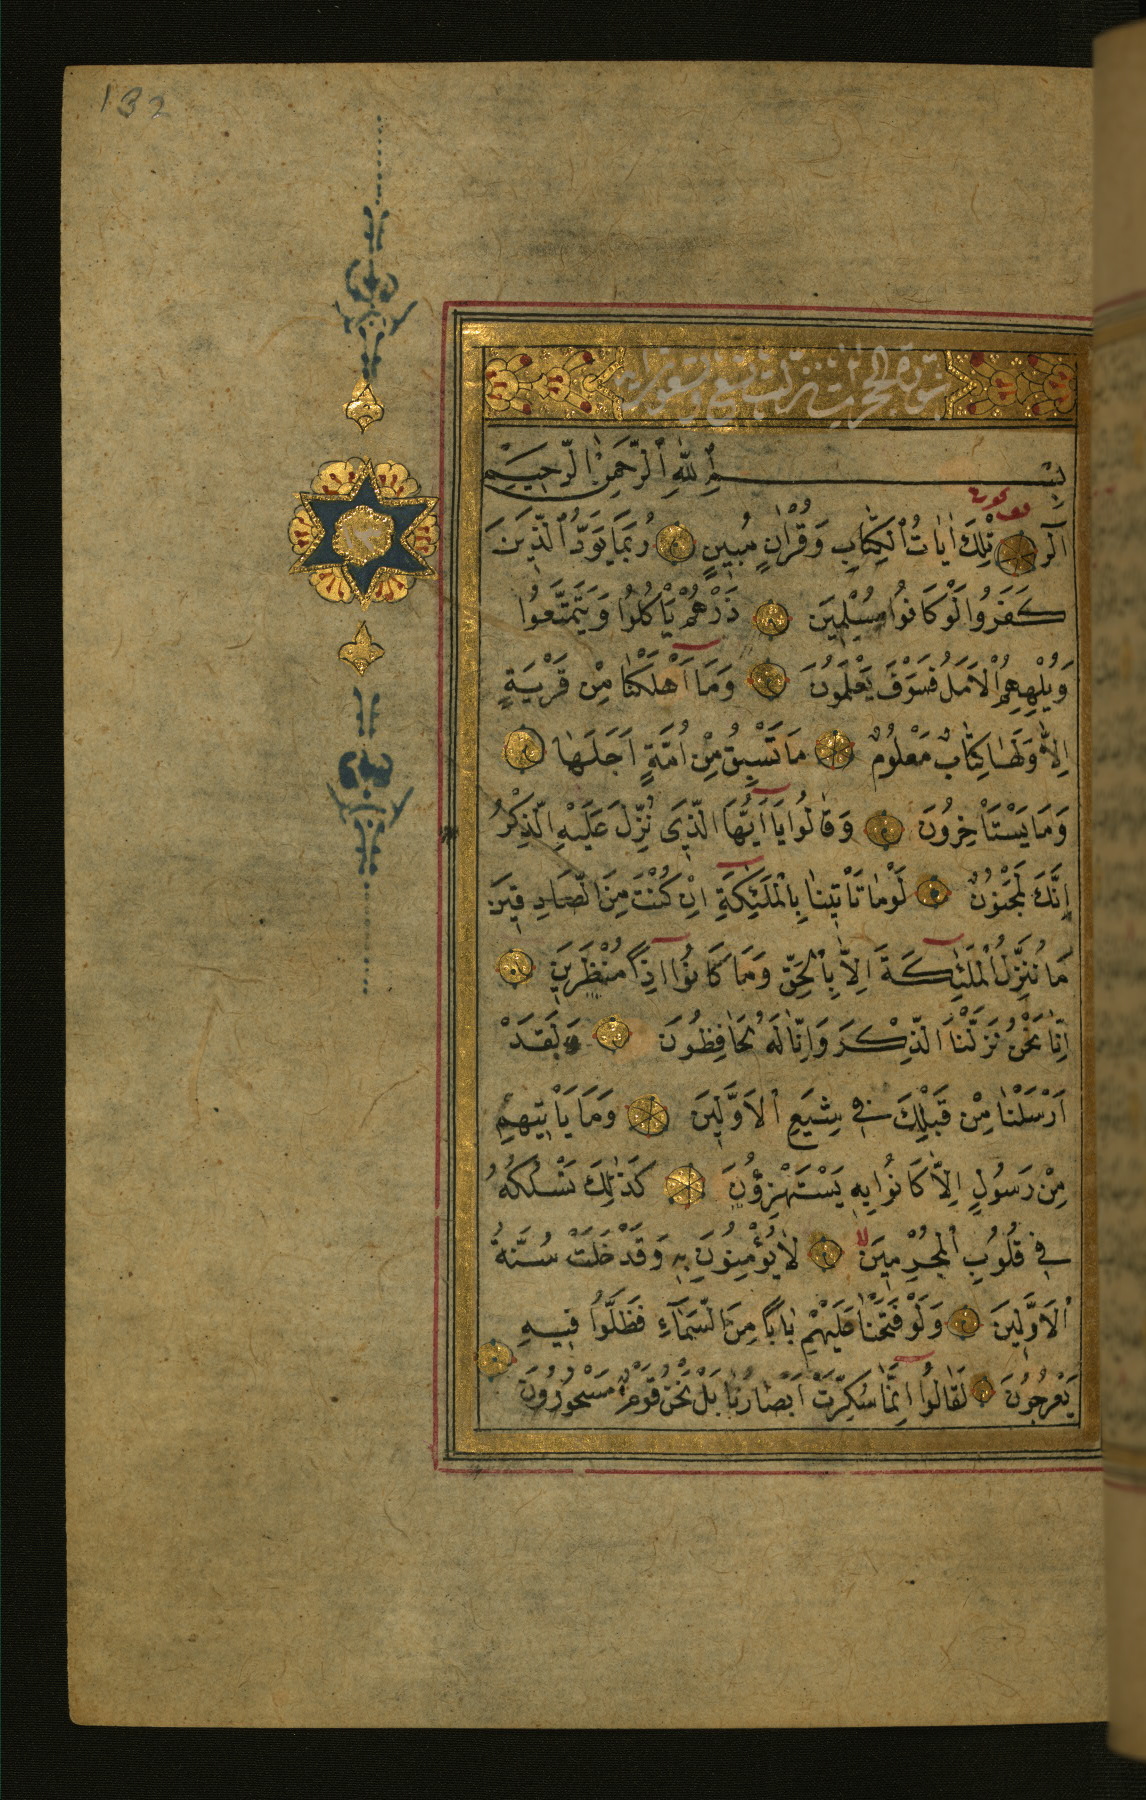 132
سورة الحجر
بِسْمِ ٱللّٰهِ ٱلرَّحْمٰنِ ٱلرَّحِيمِ
الٓر تِلْكَ اٰيَاتُ ٱلْكِتَابِ وَقُرْاٰنٍ مُبِينٍ رُبَمَا يَوَدُّ ٱلَّذِينَ
كَفَرُوا لَوْ كَانُوا مُسْلِمِينَ ذَرْهُمْ يَاْكُلُوا وَيَتَمَتَّعُوا
وَيُلْهِهِمُ ٱلْاَمَلُ فَسَوْفَ يَعْلَمُونَ وَمَا اَهْلَكْنَا مِنْ قَرْيَةٍ
اِلَّا وَلَهَا كِتَابٌ مَعْلُومٌ مَا تَسْبِقُ مِنْ اُمَّةٍ اَجَلَهَا
وَمَا يَسْتَاْخِرُونَ وَقَالُوا يَا اَيُّهَا الَّذِى نُزِّلَ عَلَيْهِ الذِّكْرُ
اِنَّكَ لَمَجْنُونٌ لَوْمَا تَاْتِينَا بِالْمَلٰئِكَةِ اِنْ كُنْتَ مِنَ الصَّادِقِينَ
مَا نُنَزِّلُ ٱلْمَلٰئِكَةَ اِلَّا بِٱلْحَقِّ وَمَا كَانُوا اِذًا مُنْظَرِينَ
اِنَّا نَحْنُ نَزَّلْنَا الذِّكْرَ وَاِنَّا لَهُ لَحَافِظُونَ وَلَقَدْ
اَرْسَلْنَا مِنْ قَبْلِكَ فِى شِيَعِ ٱلْاَوَّلِينَ وَمَا يَاْتِيهِمْ
مِنْ رَسُولٍ اِلَّا كَانُوا بِهِ يَسْتَهْزِؤُنَ كَذٰلِكَ نَسْلُكُهُ
فِى قُلُوبِ ٱلْمُجْرِمِينَ لَا يُؤْمِنُونَ بِهِ وَقَدْ خَلَتْ سُنَّةُ
ٱلْاَوَّلِينَ وَلَوْ فَتَحْنَا عَلَيْهِمْ بَابًا مِنَ السَّمَآءِ فَظَلُّوا فِيهِ
يَعْرُجُونَ لَقَالُوا اِنَّمَا سُكِّرَتْ اَبْصَارُنَا بَلْ نَحْنُ قَوْمٌ مَسْحُورُونَ